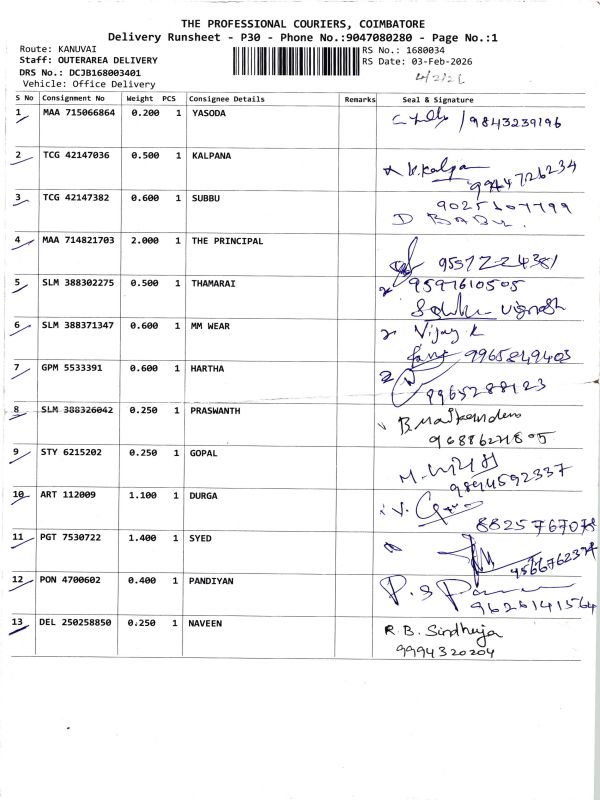 THE PROFESSIONAL COURIERS, COIMBATORE
Delivery Runsheet - P30 - Phone No.:9047080280 - Page No.:1
Route: KANUVAI
RS No.: 1680034
Staff: OUTERAREA DELIVERY
RS Date: 03-Feb-2026
DRS No.: DCJB168003401
4/2/26
Vehicle: Office Delivery
S No Consignment No Weight PCS Consignee Details Remarks Seal & Signature
1 MAA 715066864 0.200 1 YASODA
9843239196
2 TCG 42147036 0.500 1 KALPANA
K.Kalpana
9944726234
3 TCG 42147382 0.600 1 SUBBU
9025107799
D BABU.
4 MAA 714821703 2.000 1 THE PRINCIPAL
9557224381
5 SLM 388302275 0.500 1 THAMARAI
9597610505
Vignesh
6 SLM 388371347 0.600 1 MM WEAR
Vijay K
9965849403
7 GPM 5533391 0.600 1 HARTHA
9965288123
8 SLM 388326042 0.250 1 PRASWANTH
9688621805
9 STY 6215202 0.250 1 GOPAL
9894592337
10 ART 112009 1.100 1 DURGA
8825767078
11 PGT 7530722 1.400 1 SYED
9566762374
12 PON 4700602 0.400 1 PANDIYAN
9626141564
13 DEL 250258850 0.250 1 NAVEEN
R.B. Sindhuja
9994320204